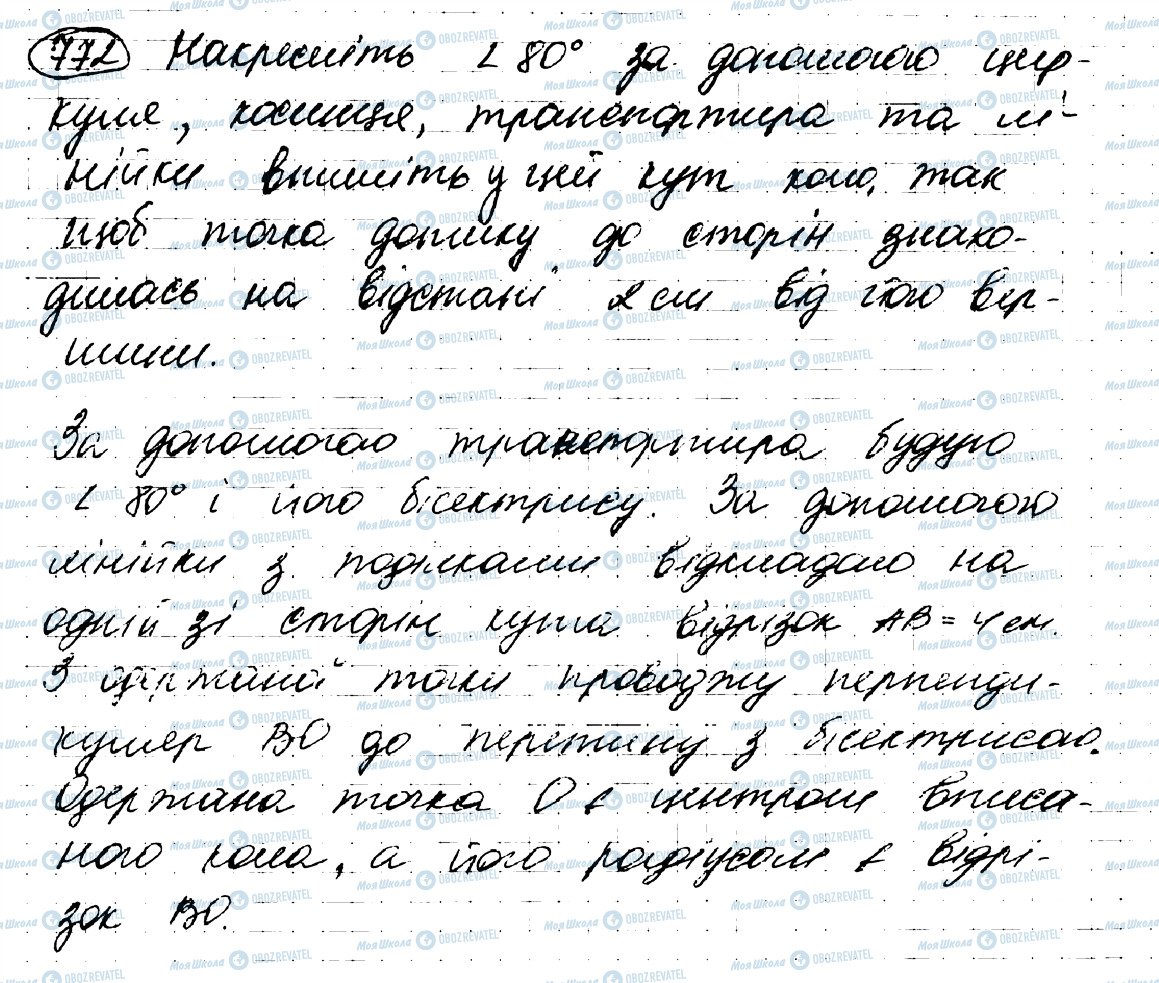 772 Накресліть ∠80° за допомогою цир-
куля, косинця, транспортира та лі-
нійки впишіть у цей кут коло, так
щоб точка дотику до сторін знахо-
дилась на відстані 2 см від його вер-
шини.
За допомогою транспортира будую
∠80° і його бісектрису. За допомогою
лінійки з поділками відкладаю на
одній зі сторін кута відрізок AB = 4 см.
З одержаної точки проводжу перпенди-
куляр BO до перетину з бісектрисою.
Одержана точка O є центром вписа-
ного кола, а його радіусом є відрі-
зок BO.
МояШкола OBOZREVATEL